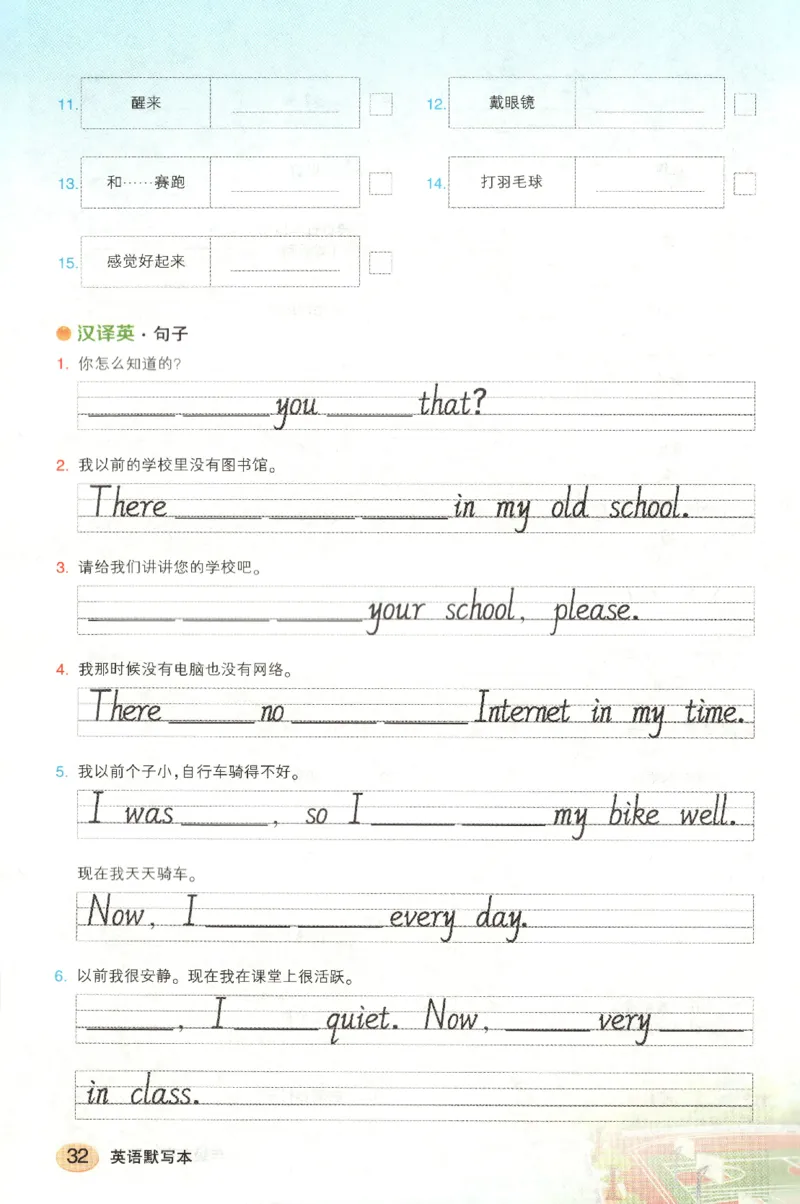 11. 醒来
12. 戴眼镜
13. 和……赛跑
14. 打羽毛球
15. 感觉好起来
汉译英·句子
1. 你怎么知道的?
you that?
2. 我以前的学校里没有图书馆。
There in my old school.
3. 请给我们讲讲您的学校吧。
your school, please.
4. 我那时候没有电脑也没有网络。
There no Internet in my time.
5. 我以前个子小,自行车骑得不好。
I was , so I my bike well.
现在我天天骑车。
Now, I every day.
6. 以前我很安静。现在我在课堂上很活跃。
, I quiet. Now, very
in class.
32 英语默写本